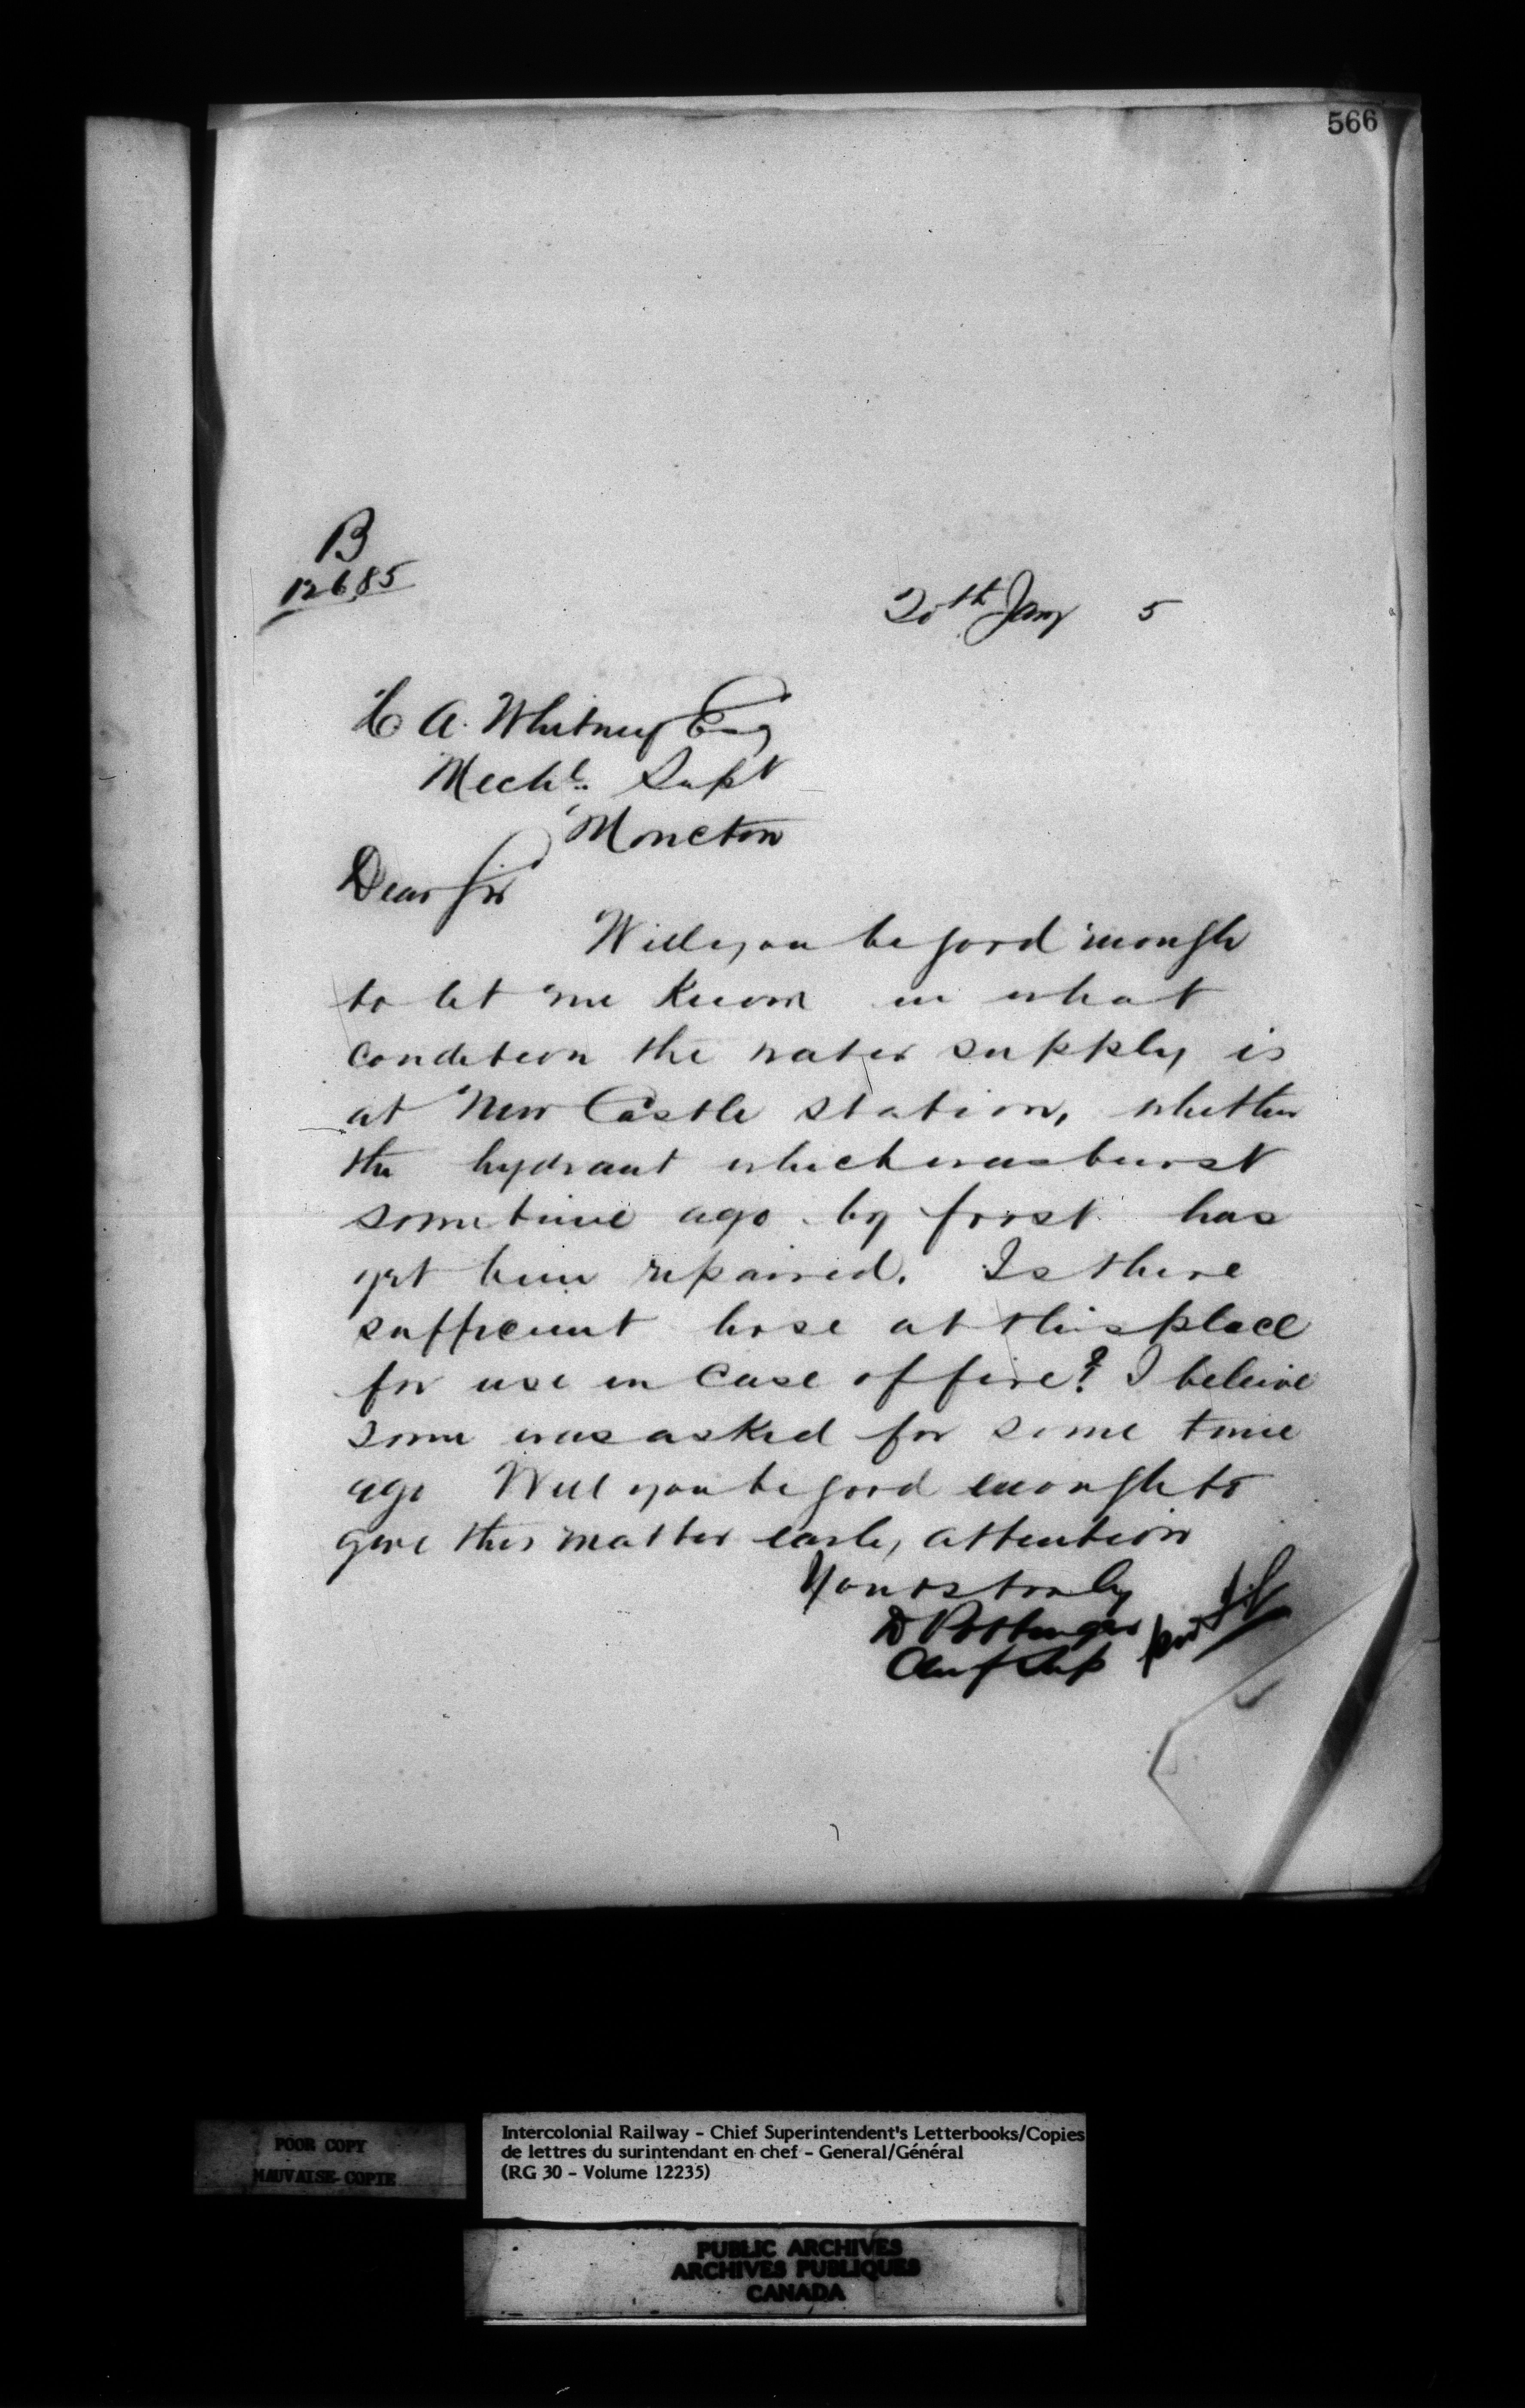 566
B
12685
20th Jany 5
H A. Whitney Esq
Mechl. Supt
Moncton
Dear Sir
Will you be good enough
to let me know in what
condition the water supply is
at New Castle station, whether
the hydrant which was burst
sometime ago by frost has
yet been repaired. Is there
sufficient hose at this place
for use in case of fire? I beleive
some was asked for some time
ago Will you be good enough to
give this matter early attention
Yours truly
D Pottinger
Chief Sup per
POOR COPY
MAUVAISE COPIE
Intercolonial Railway - Chief Superintendent's Letterbooks/Copies
de lettres du surintendant en chef - General/Général
(RG 30 - Volume 12235)
PUBLIC ARCHIVES
ARCHIVES PUBLIQUES
CANADA